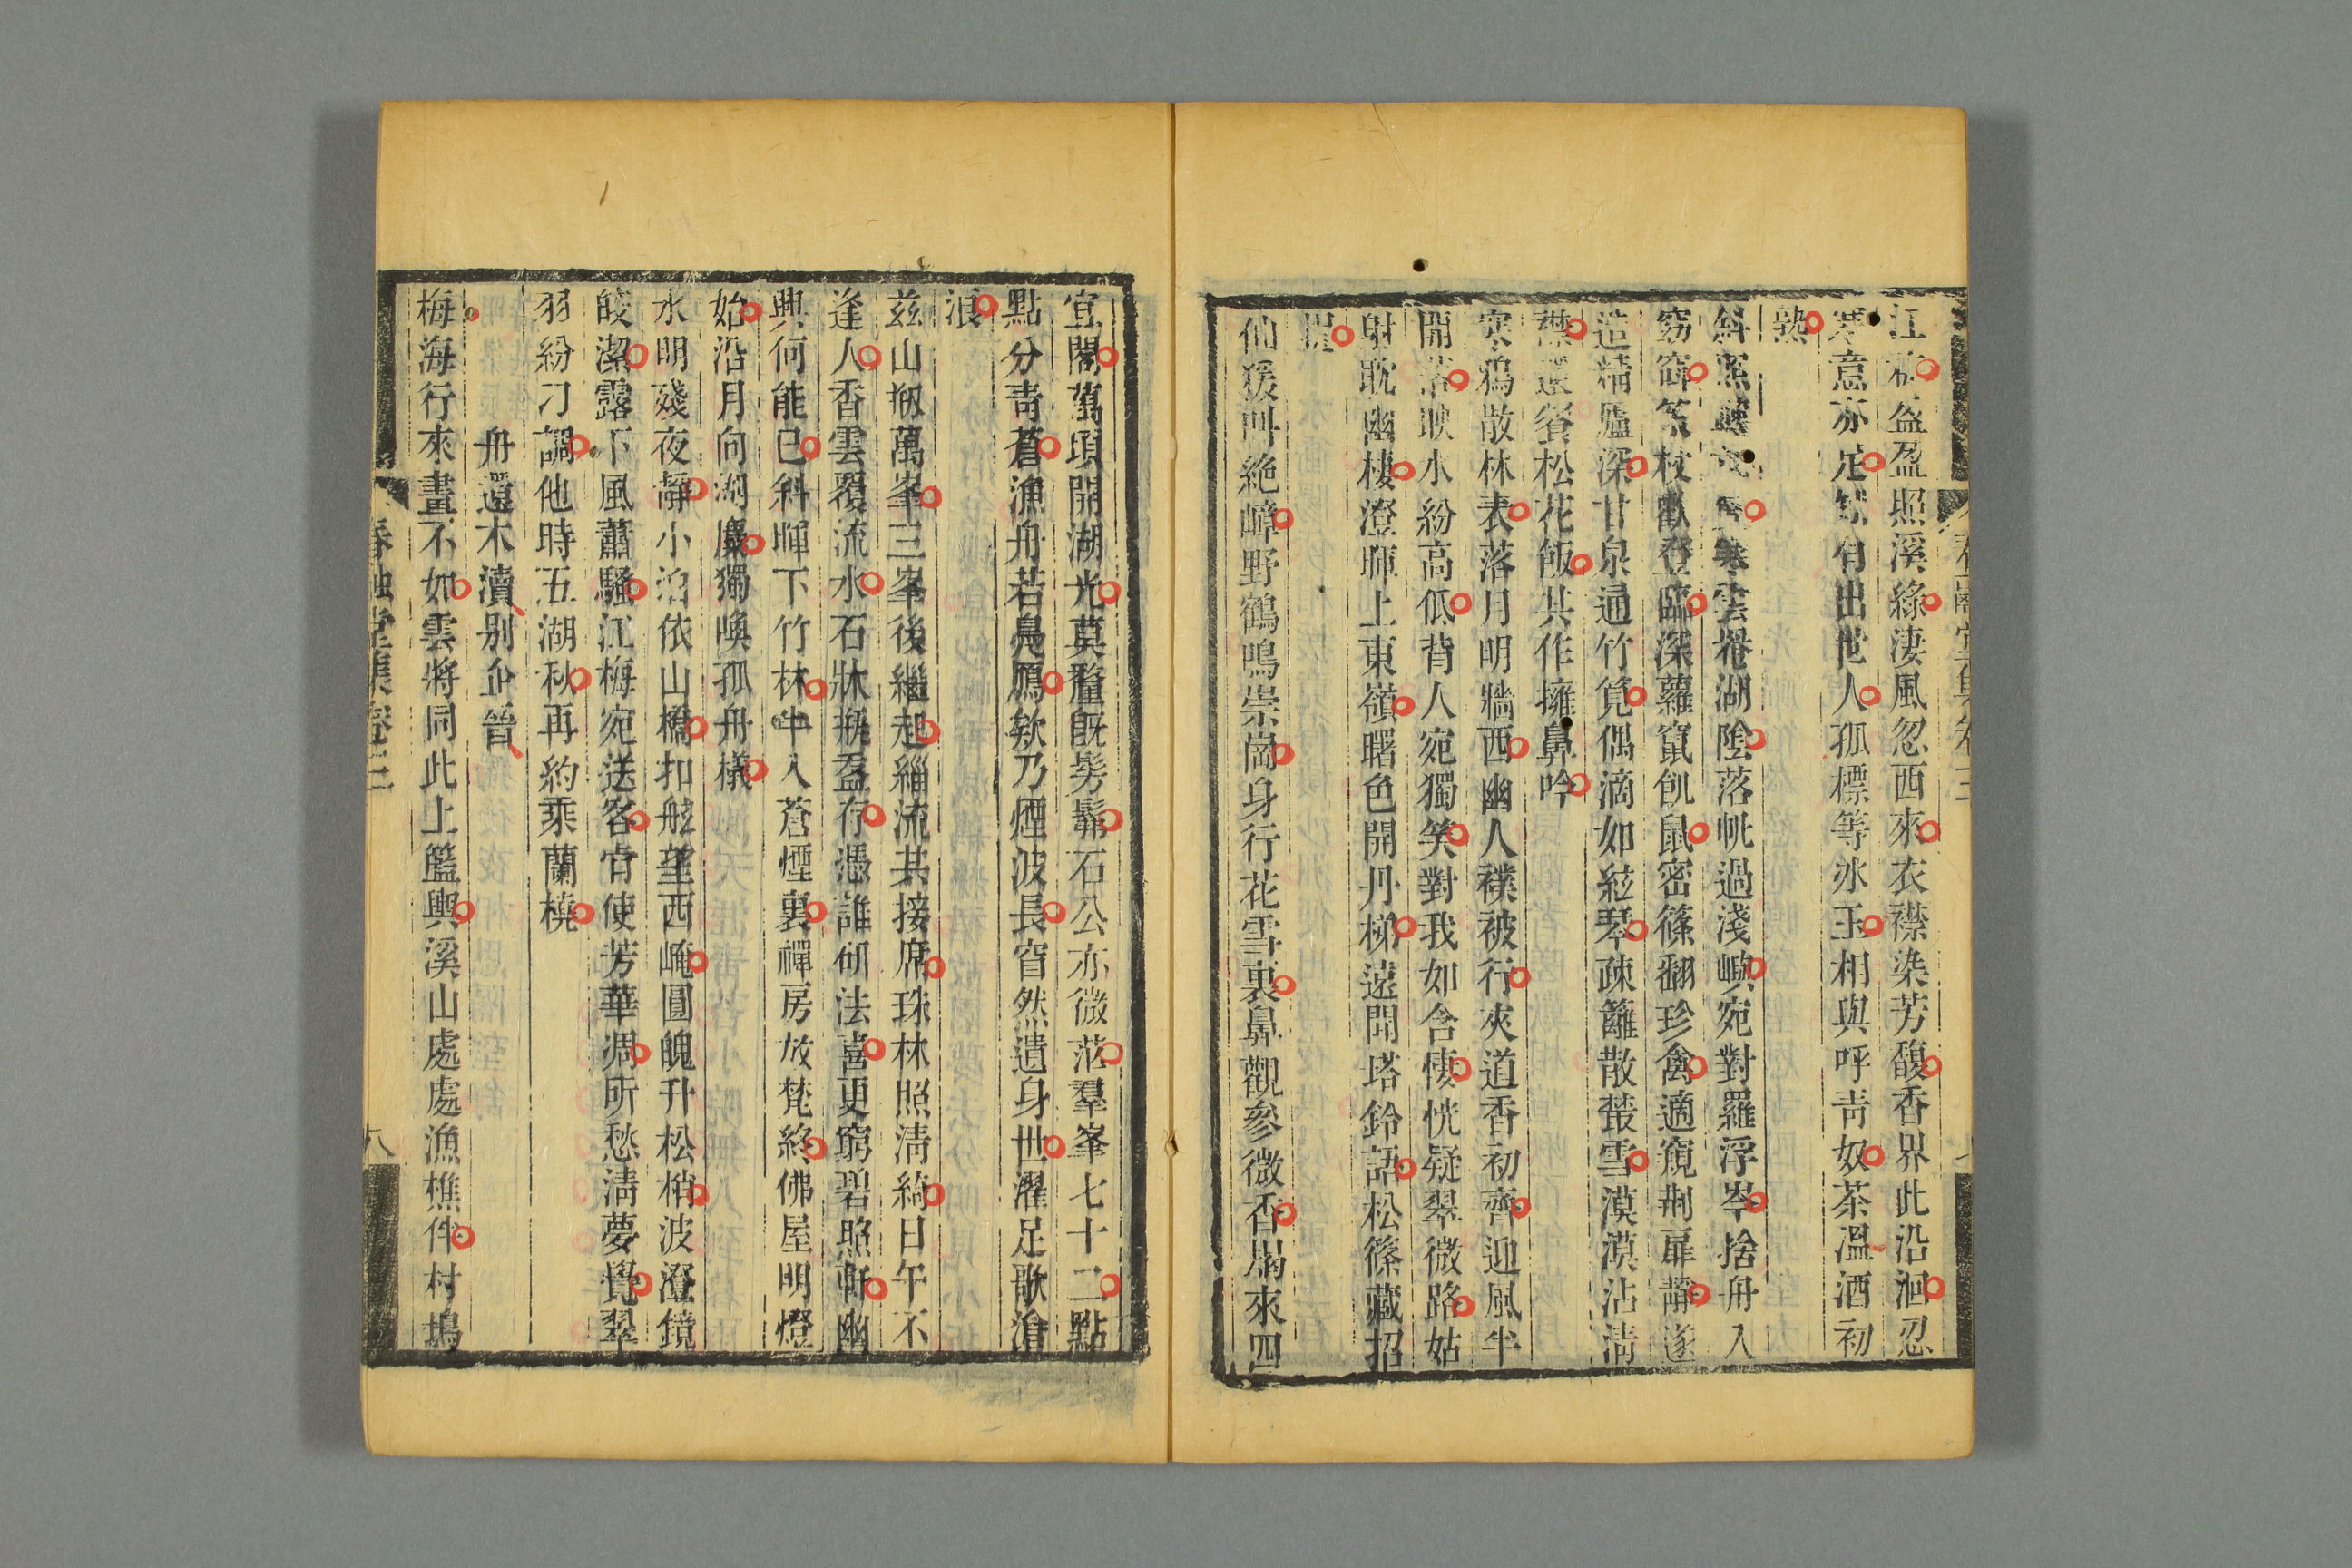 江梅盈盈照溪綠淒風忽西來衣襟染芳馥香界此沿洄忍
寒意亦足知有出世人孤標等冰玉相與呼靑奴茶溫酒初
熟
斜照寒雲捲湖陰落帆過淺嶼宛對羅浮岑捨舟入
窈窕策杖歡登臨深蘿竄飢鼠密篠翻珍禽適窺荆扉靜遂
造精廬深甘泉通竹筧偶滴如絃琴疎籬散蕞雪漠漠沾清
襟還餐松花飯共作擁鼻吟
寒鴉散林表落月明牆西幽人襆被行夾道香初齊迎風半
開落映水紛高低背人宛獨笑對我如含悽恍疑翠微路姑
射耽幽棲澄暉上東嶺曙色開丹梯遠聞塔鈴語松篠藏招
提
仙猨叫絕嶂野鶴鳴崇崗身行花雪裏鼻觀參微香舄來四
宜閣萬頃開湖光莫釐旣髣髴石公亦微茫羣峯七十二點
點分靑蒼漁舟若鳧鴈欸乃煙波長窅然遺身世濯足歌滄
浪
茲山剏萬峯三峯後繼起緇流共接席珠林照清綺日午不
逢人香雲覆流水石牀瓶盔存憑誰硏法喜更窮碧照軒幽
興何能已斜暉下竹林半入蒼煙裏禪房放梵終佛屋明燈
始沿月向湖麋獨喚孤舟檥
水明殘夜靜小泊依山橋扣舷望西崦圓魄升松梢波澄鏡
皎潔露下風蕭騷江梅宛送客肯使芳華凋所愁淸夢覺翠
羽紛刁調他時五湖秋再約乘蘭橈
舟還木瀆別企晉
梅海行來畫不如雲將同此上籃輿溪山處處漁樵伴村塢
春融堂集卷三
八